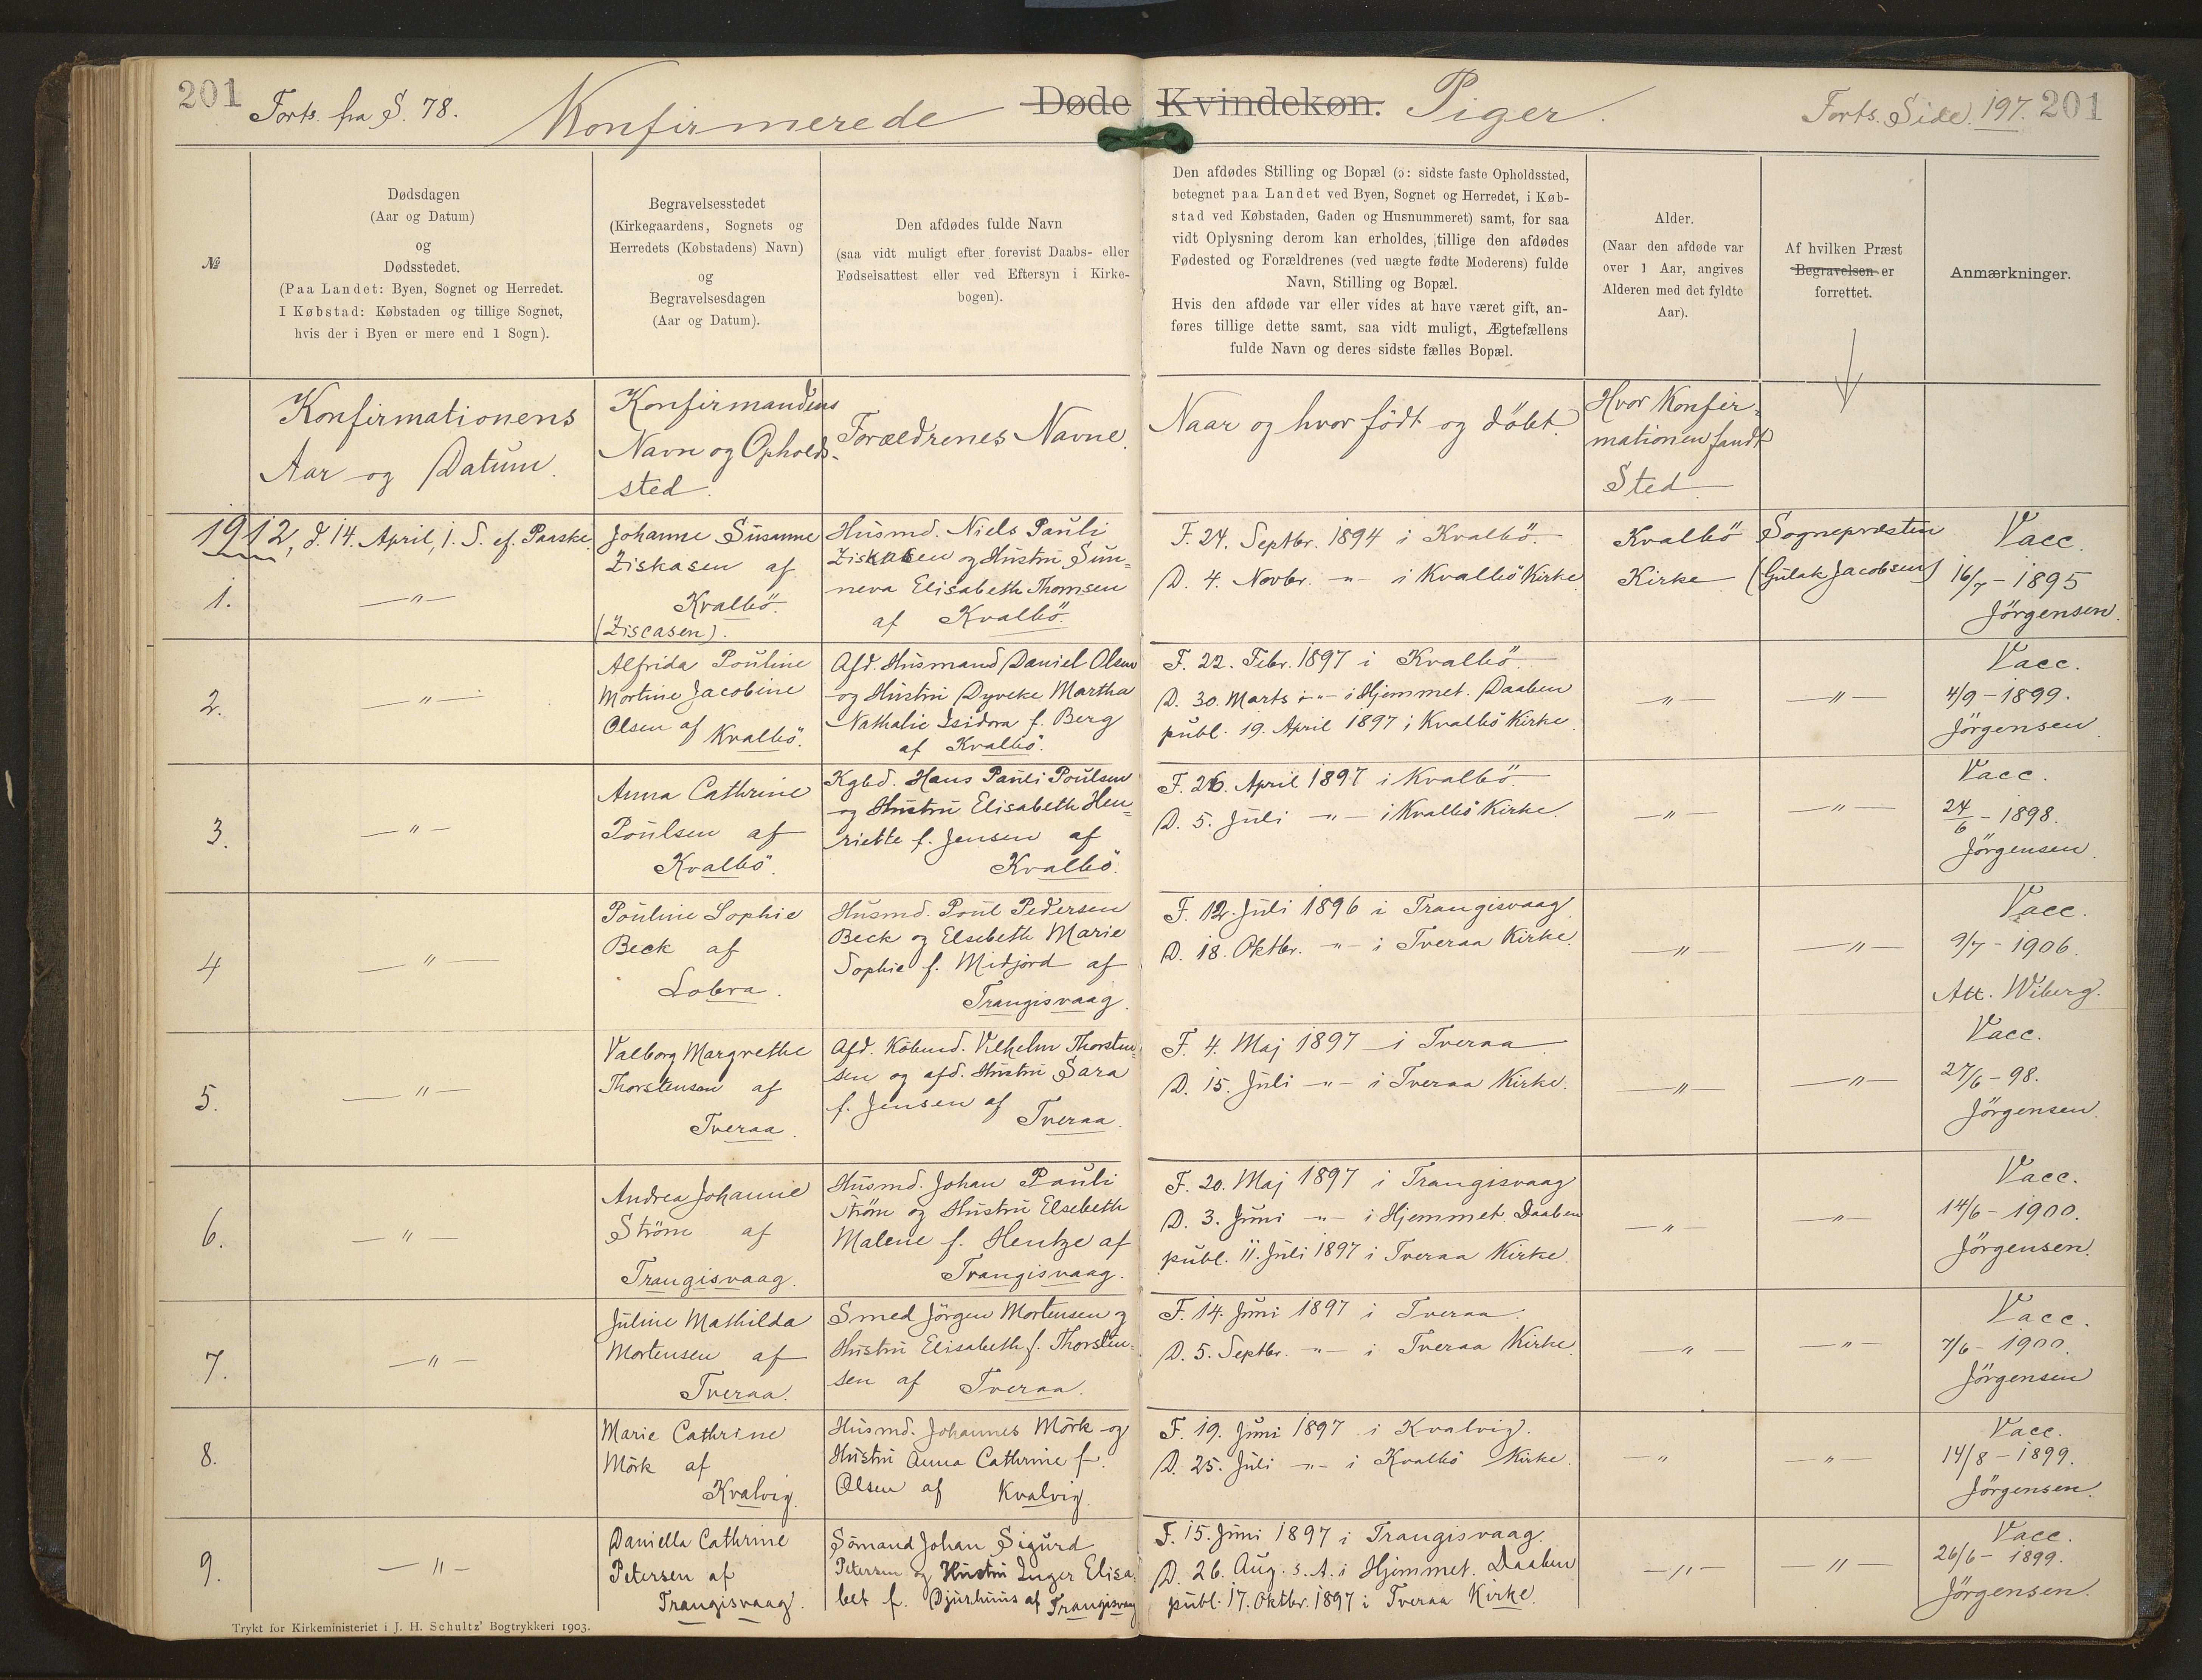 201 Forts. fra S. 78. Konfirmerede Døde Kvindekøn. Piger. Forts. Side. 197. 201
№
Dødsdagen
(Aar og Datum)
og
Dødsstedet.
(Paa Landet: Byen, Sognet og Herredet.
I Købstad: Købstaden og tillige Sognet,
hvis der i Byen er mere end 1 Sogn).
Begravelsesstedet
(Kirkegaardens, Sognets og
Herredets (Købstadens) Navn)
og
Begravelsesdagen
(Aar og Datum).
Den afdødes fulde Navn
(saa vidt muligt efter forevist Daabs- eller
Fødselsattest eller ved Eftersyn i Kirke-
bogen).
Den afdødes Stilling og Bopæl (ɔ: sidste faste Opholdssted,
betegnet paa Landet ved Byen, Sognet og Herredet, i Køb-
stad ved Købstaden, Gaden og Husnummeret) samt, for saa
vidt Oplysning derom kan erholdes, tillige den afdødes
Fødested og Forældrenes (ved uægte fødte Moderens) fulde
Navn, Stilling og Bopæl.
Hvis den afdøde var eller vides at have været gift, an-
føres tillige dette samt, saa vidt muligt, Ægtefællens
fulde Navn og deres sidste fælles Bopæl.
Alder.
(Naar den afdøde var
over 1 Aar, angives
Alderen med det fyldte
Aar).
Af hvilken Præst
Begravelsen er
forrettet.
Anmærkninger.
Konfirmationens
Aar og Datum.
Konfirmandens
Navn og Opholds-
sted.
Forældrenes Navne.
Naar og hvor födt og döbt.
Hvor Konfir-
mationen fandt
Sted
1912, d. 14. April, 1. S. ef. Paaske.
1.
—"—
Johanne Susanne
Ziskasen af
Kvalbö.
(Ziscasen).
Husmd. Niels Pauli
Ziskasen og Hustru Sun-
neva Elisabeth Thomsen
af Kvalbö.
F. 24. Septbr. 1894 i Kvalbö.
D. 4. Novbr. —"— i Kvalbö Kirke
Kvalbö
Kirke
Sognepræsten
(Gulak Jacobsen)
Vacc.
16/7 - 1895
Jörgensen.
2.
—"—
Alfrida Pouline
Mortine Jacobine
Olsen af Kvalbö.
Afd. Husmand Daniel Olsen
og Hustru Dyveke Martha
Nathalie Isidora f. Berg
af Kvalbö.
F. 22. Febr. 1897 i Kvalbö.
D. 30. Marts —"— i Hjemmet. Daaben
publ. 19. April 1897 i Kvalbö Kirke.
—"—
—"—
Vacc.
4/9 - 1899.
Jörgensen.
3.
—"—
Anna Cathrine
Poulsen af
Kvalbö.
Kgbd. Hans Pauli Poulsen
og Hustru Elisabeth Hen-
riette f. Jensen af
Kvalbö.
F. 26. April 1897 i Kvalbö.
D. 5. Juli —"— i Kvalbö Kirke.
—"—
—"—
Vacc.
24/6 - 1898.
Jörgensen.
4
—"—
Pouline Sophie
Beck af
Lobra.
Husmd. Poul Pedersen
Beck og Elsebeth Marie
Sophie f. Midjord af
Trangisvaag.
F. 12. Juli 1896 i Trangisvaag.
D. 18. Oktbr. —"— i Tveraa Kirke.
—"—
—"—
Vacc.
9/7 - 1906.
Att. Wiberg.
5.
—"—
Valborg Margrethe
Thorstensen af
Tveraa.
Afd. Köbmd. Vilhelm Thorsten-
sen og afd. Hustru Sara
f. Jensen af Tveraa.
F. 4. Maj 1897 i Tveraa
D. 15. Juli —"— i Tveraa Kirke.
—"—
—"—
Vacc.
27/6 - 98.
Jörgensen.
6.
—"—
Andrea Johanne
Ström af
Trangisvaag.
Husmd. Johan Pauli
Ström og Hustru Elsebeth
Malene f. Hentze af
Trangisvaag.
F. 20. Maj 1897 i Trangisvaag
D. 3. Juni —"— i Hjemmet. Daaben
publ. 11. Juli 1897 i Tveraa Kirke.
—"—
—"—
Vacc.
14/6 - 1900.
Jörgensen.
7.
—"—
Juline Mathilda
Mortensen af
Tveraa.
Smed Jörgen Mortensen og
Hustru Elisabeth f. Thorsten-
sen af Tveraa.
F. 14. Juni 1897 i Tveraa.
D. 5. Septbr. —"— i Tveraa Kirke.
—"—
—"—
Vacc.
7/6 - 1900.
Jörgensen
8.
—"—
Marie Cathrine
Mörk af
Kvalvig.
Husmd. Johannes Mörk og
Hustru Anna Cathrine f.
Olsen af Kvalvig.
F. 19. Juni 1897 i Kvalvig.
D. 25. Juli —"— i Kvalbö Kirke.
—"—
—"—
Vacc.
14/8 - 1899.
Jörgensen.
9.
—"—
Daniella Cathrine
Petersen af
Trangisvaag.
Sömand Johan Sigurd
Petersen og Hustru Inger Elisa-
bet f. Djurhuus af Trangisvaag
F. 15. Juni 1897 i Trangisvaag.
D. 26. Aug. s. A. i Hjemmet. Daaben
publ. 17. Oktbr. 1897 i Tveraa Kirke.
—"—
—"—
Vacc.
26/6 - 1899.
Jörgensen.
Trykt for Kirkeministeriet i J. H. Schultz' Bogtrykkeri 1903.